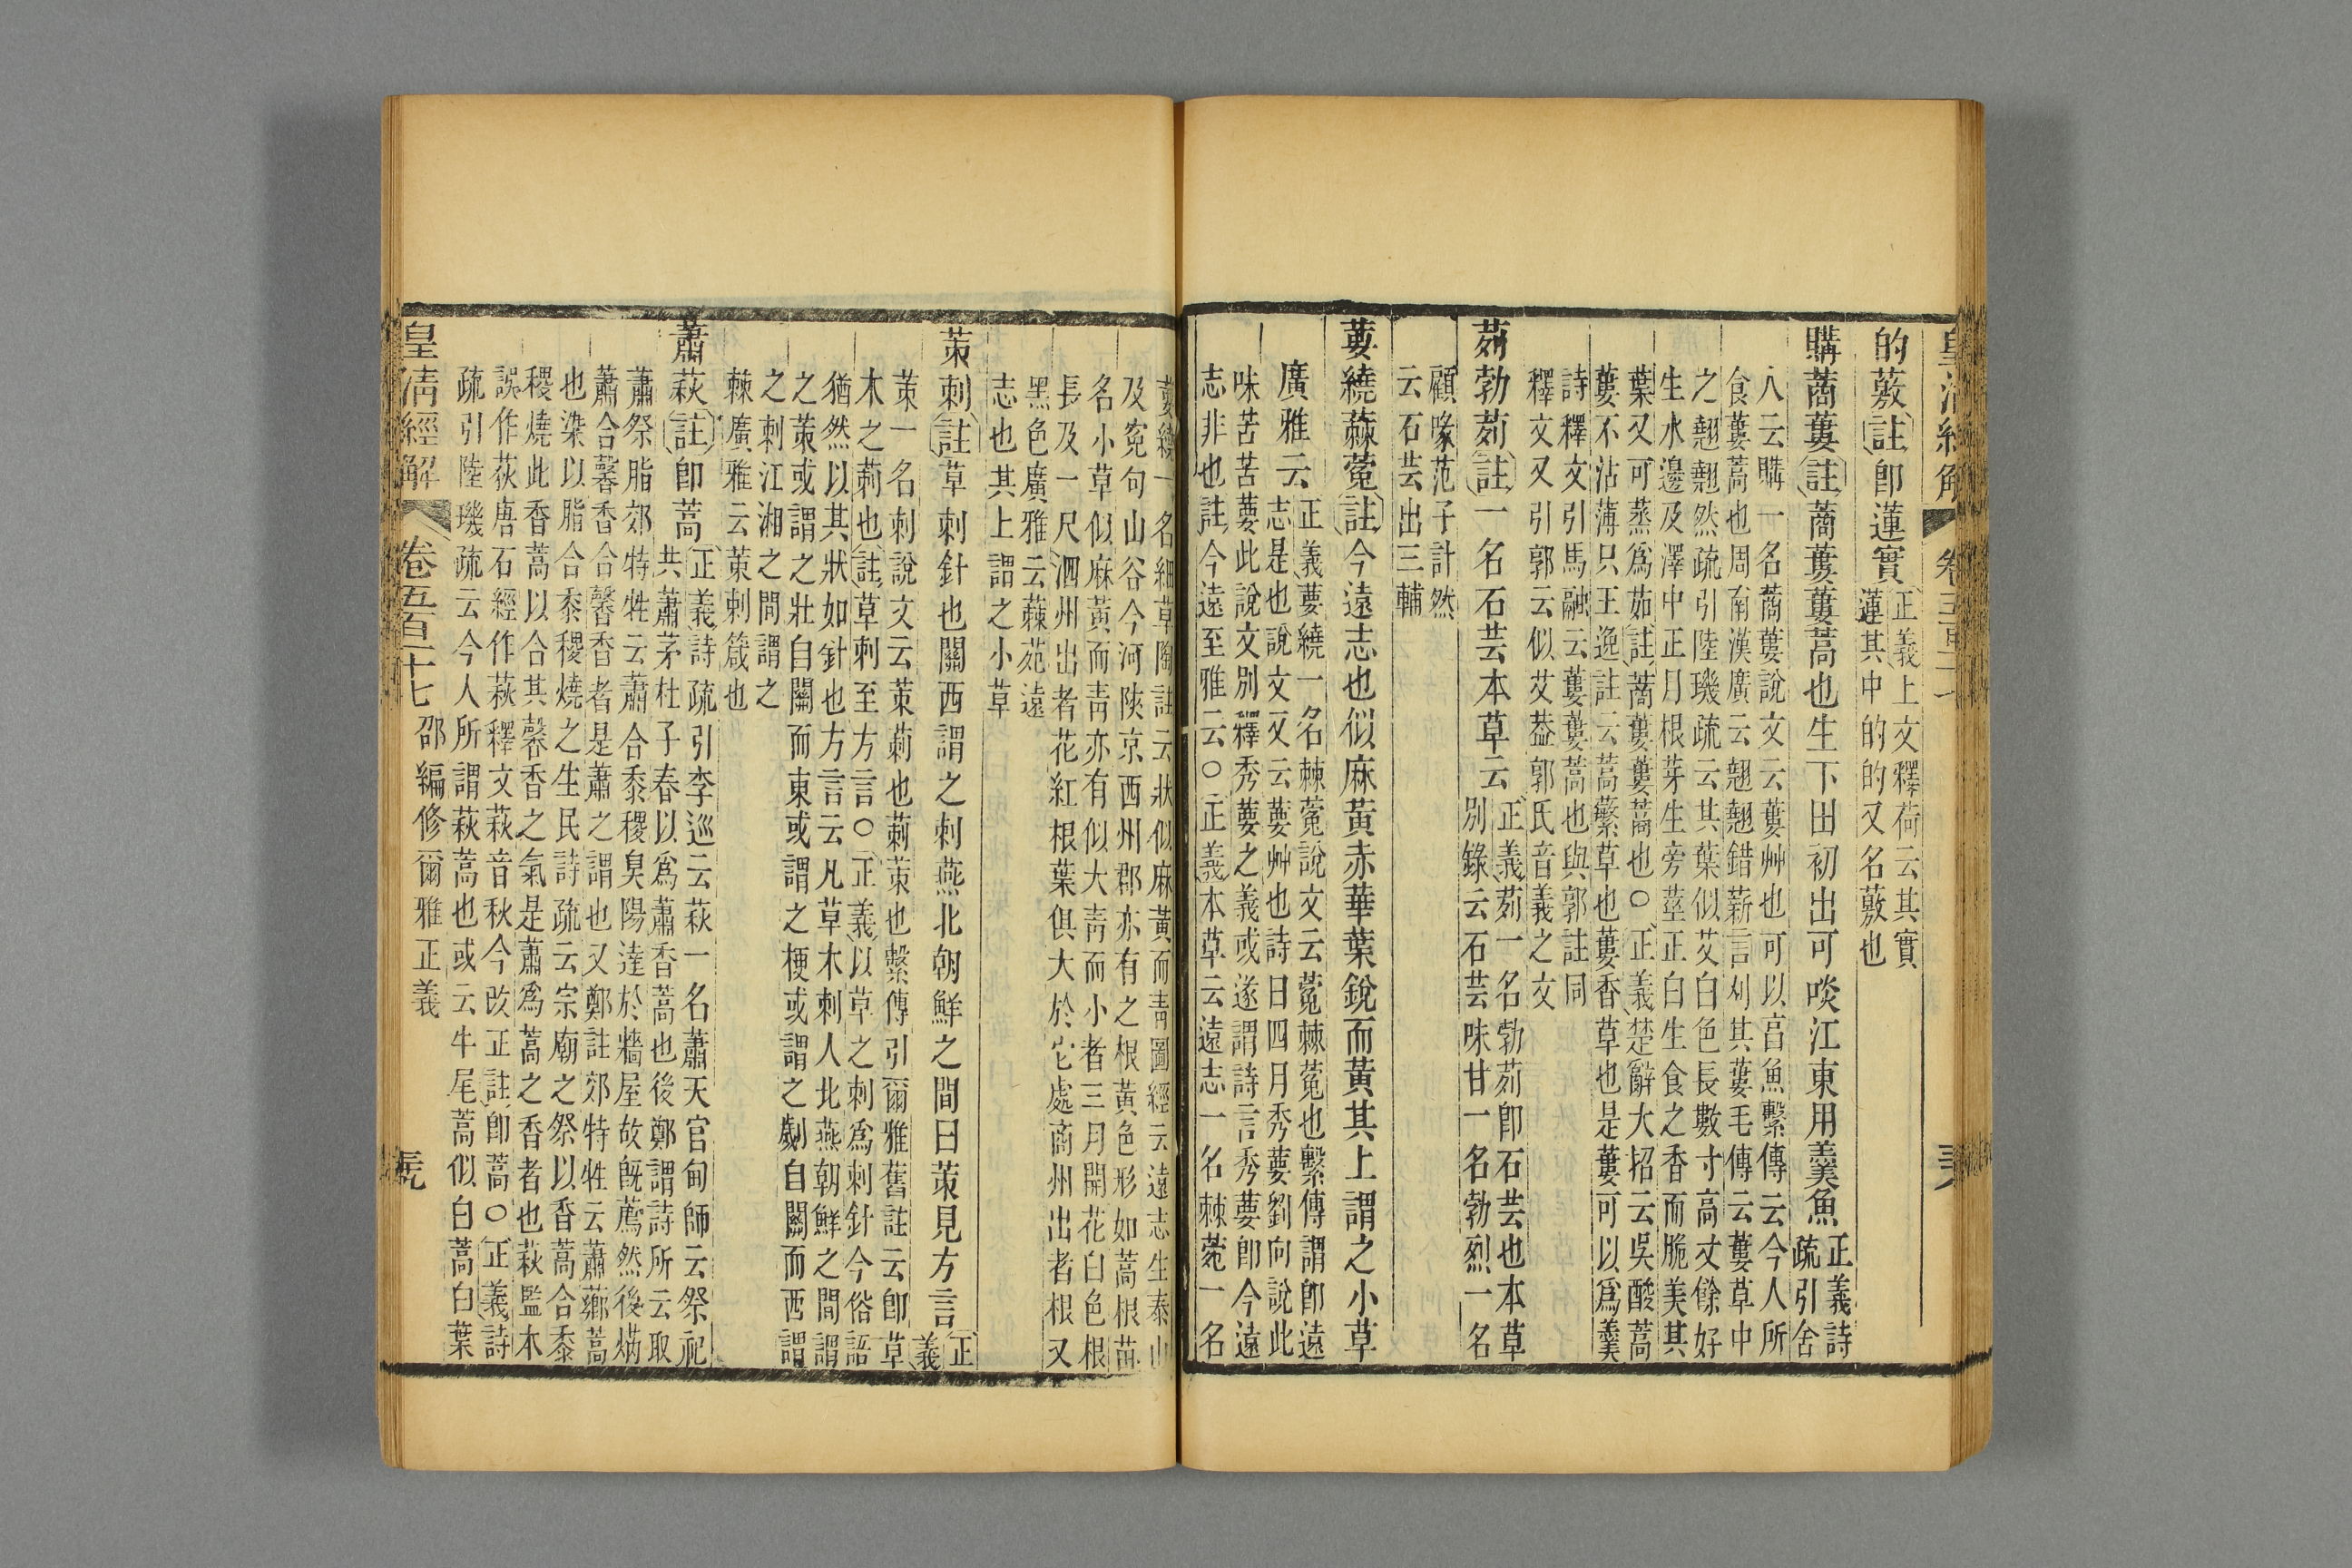 的薂註卽蓮實正義上文釋荷云其實
蓮其中的的又名薂也
購蔏蔞註蔏蔞蔞蒿也生下田初出可啖江東用羹魚正義詩
疏引舍
人云購一名蔏蔞說文云蔞艸也可以亯魚繫傳云今人所
食蔞蒿也周南漢廣云翹翹錯薪言刈其蔞毛傳云蔞草中
之翹翹然疏引陸璣疏云其葉似艾白色長數寸高丈餘好
生水邊及澤中正月根芽生旁莖正白生食之香而脆美其
葉又可蒸爲茹註蔏蔞蔞蒿也○正義楚辭大招云吳酸蒿
蔞不沾薄只王逸註云蒿蘩草也蔞香草也是蔞可以爲羹
詩釋文引馬融云蔞蔞蒿也與郭註同
釋文又引郭云似艾葢郭氏音義之文
茢勃茢註一名石芸本草云正義茢一名勃茢卽石芸也本草
別錄云石芸味甘一名勃烈一名
顧喙范子計然
云石芸出三輔
葽繞蕀蒬註今遠志也似麻黃赤華葉銳而黃其上謂之小草
廣雅云正義葽繞一名棘蒬說文云蒬棘蒬也繫傳謂卽遠
志是也說文又云葽艸也詩曰四月秀葽劉向說此
味苦苦葽此說文別釋秀葽之義或遂謂詩言秀葽卽今遠
志非也註今遠至雅云○正義本草云遠志一名棘菀一名
葽繞一名細草陶註云狀似麻黃而靑圖經云遠志生泰山
及寃句山谷今河陝京西州郡亦有之根黃色形如蒿根苗
名小草似麻黃而靑亦有似大靑而小者三月開花白色根
長及一尺泗州出者花紅根葉俱大於它處商州出者根又
黑色廣雅云蕀苑遠
志也其上謂之小草
茦刺註草刺針也關西謂之刺燕北朝鮮之間曰茦見方言正
義
茦一名刺說文云茦莿也莿茦也繫傳引爾雅舊註云卽草
木之莿也註草刺至方言○正義以草之刺爲刺針今俗語
猶然以其狀如針也方言云凡草木刺人北燕朝鮮之間謂
之茦或謂之壯自關而東或謂之梗或謂之劌自關而西謂
之刺江湘之間謂之
棘廣雅云茦刺箴也
蕭萩註卽蒿正義詩疏引李巡云萩一名蕭天官甸師云祭祀
共蕭茅杜子春以爲蕭香蒿也後鄭謂詩所云取
蕭祭脂郊特牲云蕭合黍稷臭陽達於牆屋故旣薦然後焫
蕭合馨香合馨香者是蕭之謂也又鄭註郊特牲云蕭薌蒿
也染以脂合黍稷燒之生民詩疏云宗廟之祭以香蒿合黍
稷燒此香蒿以合其馨香之氣是蕭爲蒿之香者也萩監本
誤作荻唐石經作萩釋文萩音秋今改正註卽蒿○正義詩
疏引陸璣疏云今人所謂萩蒿也或云牛尾蒿似白蒿白葉
皇淸經解 卷五百十七 邵編修爾雅正義